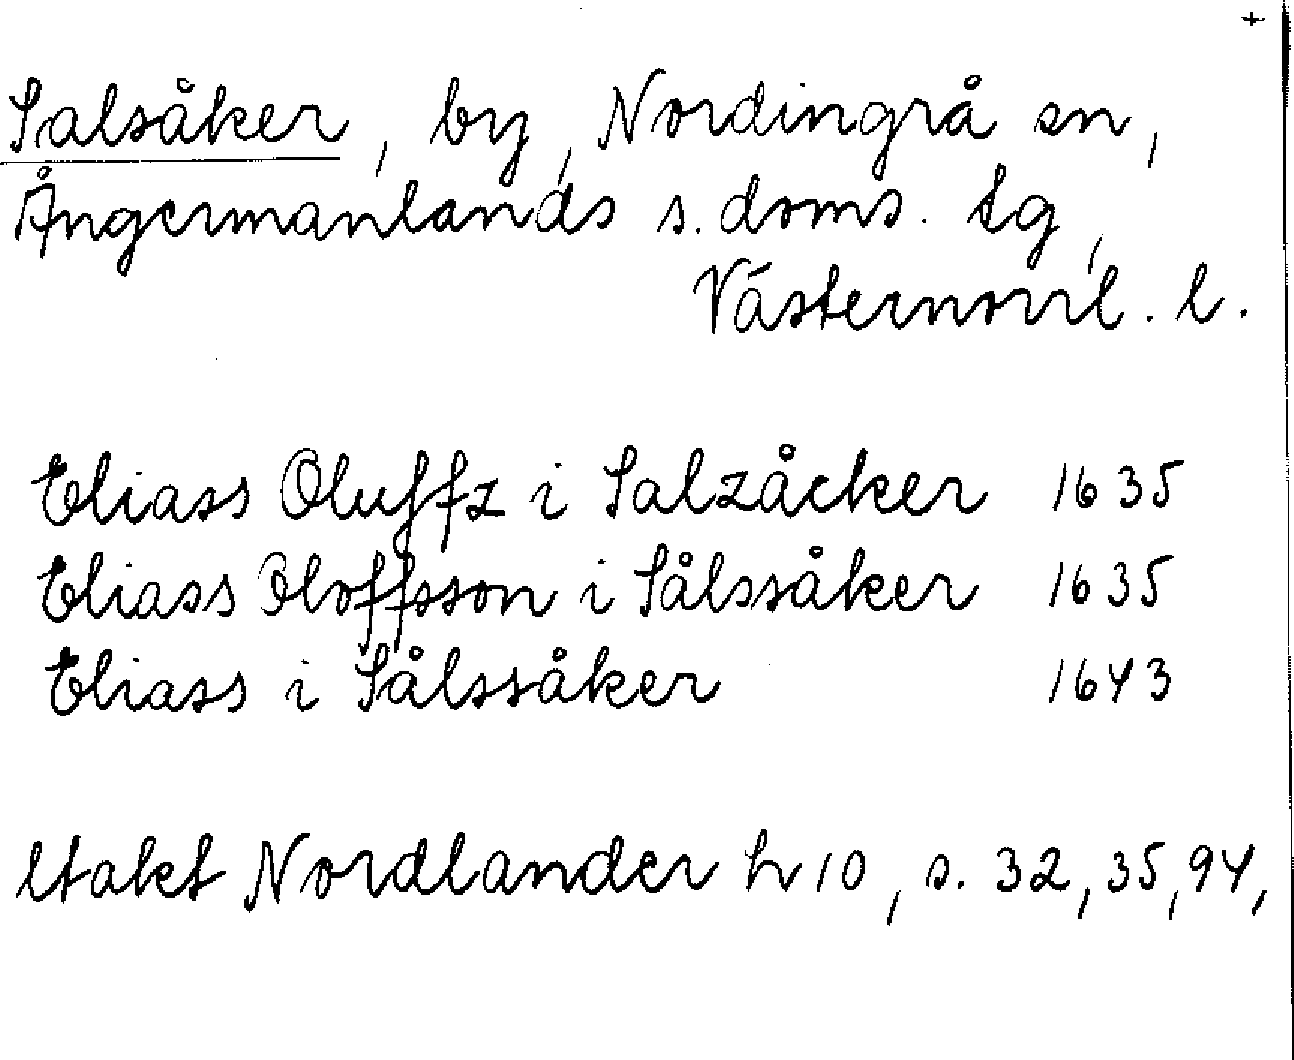 +
Salsåker, by, Nordingrå sn,
Ångermanlands s. doms. tg,
Västernorrl. l.
Eliass Oluffz i Salzåcker 1635
Eliass Oloffsson i Sålssåker 1635
Eliass i Sålssåker 1643
Utakt Nordlander h 10, s. 32, 35, 94,